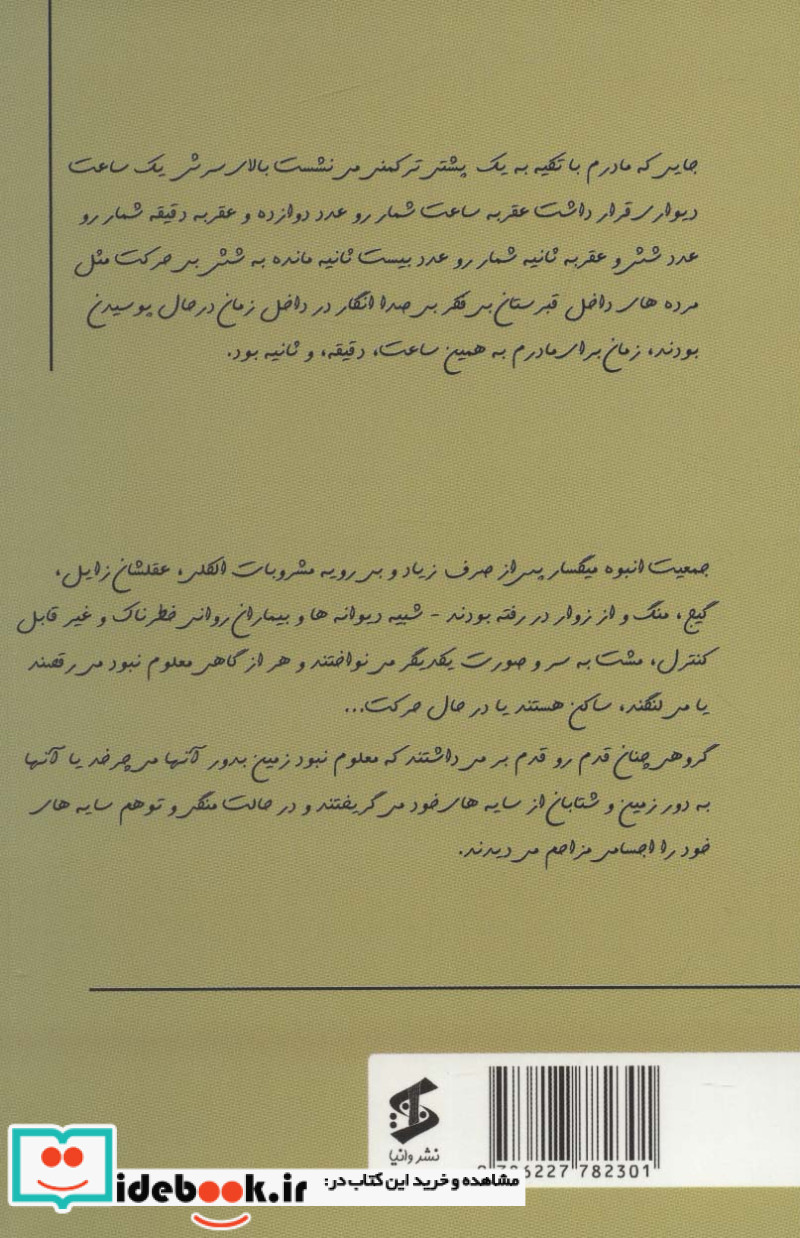 جایی که مادرم با تکیه به یک پشتی ترکمنی می نشست بالای سرش یک ساعت
دیواری قرار داشت عقربه ساعت شمار رو عدد دوازده و عقربه دقیقه شمار رو
عدد شش و عقربه ثانیه شمار رو عدد بیست ثانیه مانده به شش بی حرکت مثل
مرده های داخل قبرستان بی فکر بی صدا انگار در داخل زمان درحال پوسیدن
بودند، زمان برای مادرم به همین ساعت، دقیقه، و ثانیه بود.
جمعیت انبوه میگسار پس از صرف زیاد و بی رویه مشروبات الکلی، عقلشان زایل،
گیج، منگ و از زوار در رفته بودند - شبیه دیوانه ها و بیماران روانی خطرناک و غیر قابل
کنترل، مشت به سر و صورت یکدیگر می نواختند و هر از گاهی معلوم نبود می رقصند
یا می لنگند، ساکن هستند یا در حال حرکت...
گروهی چنان قدم رو قدم بر می داشتند که معلوم نبود زمین بدور آنها می چرخد یا آنها
به دور زمین و شتابان از سایه های خود می گریختند و در حالت منگی و توهم سایه های
خود را اجسامی مزاحم می دیدند.
نشر وانیا
786227 782301
مشاهده و خرید این کتاب در:
idebook.ir